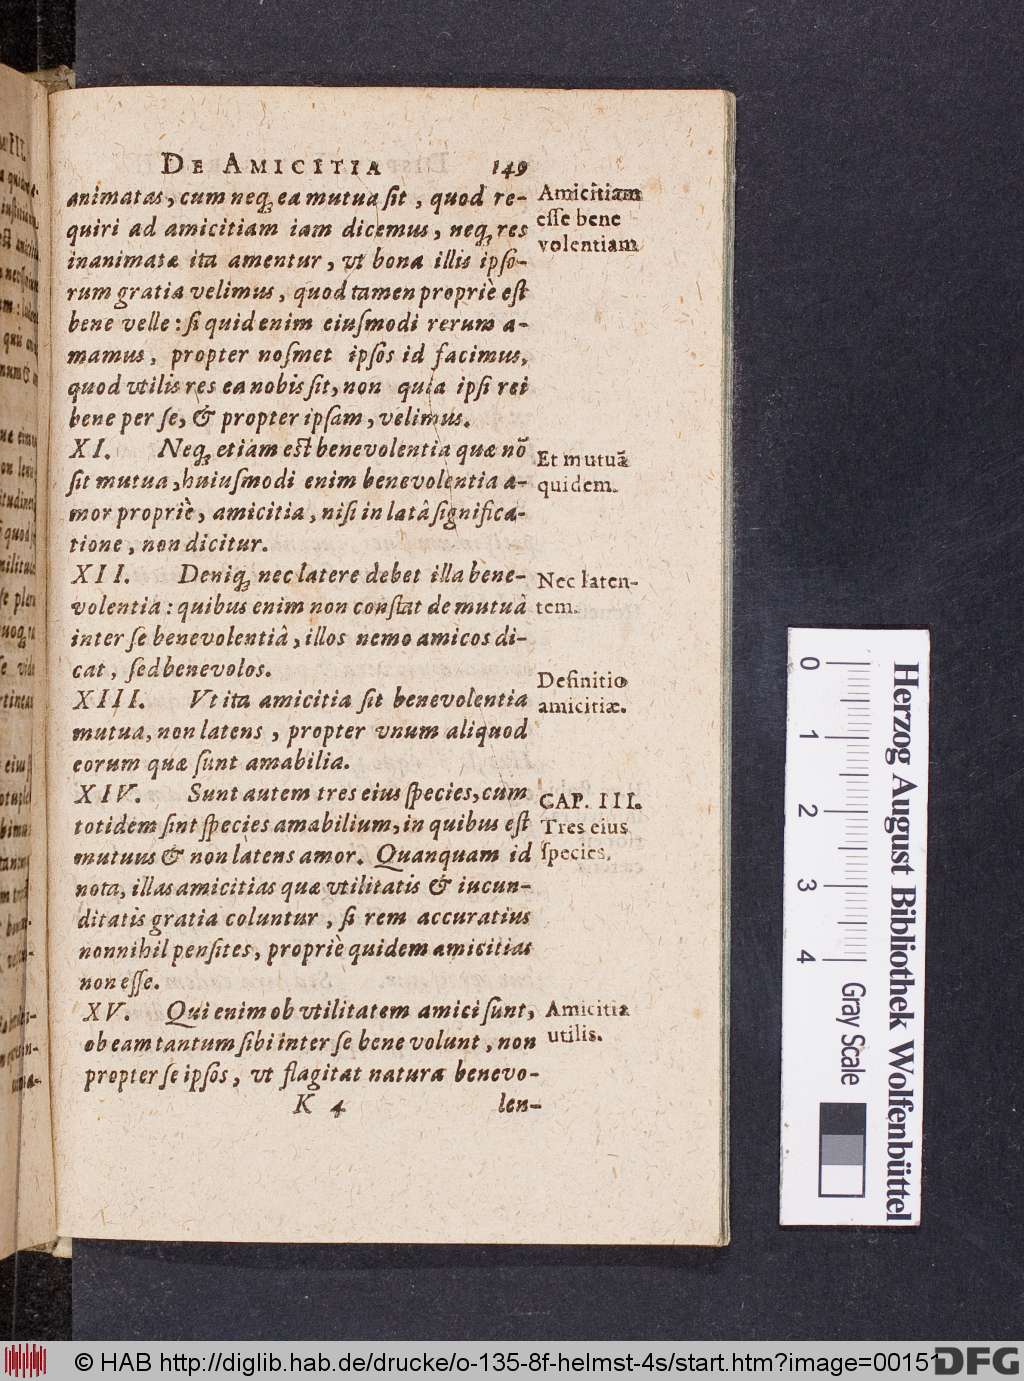 DE AMICITIA 149
animatas, cum neq; ea mutua sit, quod re-
quiri ad amicitiam iam dicemus, neq; res
inanimatæ ita amentur, vt bona illis ipso-
rum gratia velimus, quod tamen propriè est
bene velle: si quid enim eiusmodi rerum a-
mamus, propter nosmet ipsos id facimus,
quod vtilis res ea nobis sit, non quia ipsi rei
bene per se, & propter ipsam, velimus.
Amicitiam
esse bene
volentiam
XI. Neq; etiam est benevolentia quæ nõ
sit mutua, huiusmodi enim benevolentia a-
mor propriè, amicitia, nisi in latâ significa-
tione, non dicitur.
Et mutuã
quidem.
XII. Deniq; nec latere debet illa bene-
volentia: quibus enim non constat de mutuâ
inter se benevolentiâ, illos nemo amicos di-
cat, sed benevolos.
Nec laten-
tem.
XIII. Vt ita amicitia sit benevolentia
mutua, non latens, propter vnum aliquod
eorum quæ sunt amabilia.
Definitio
amicitiæ.
XIV. Sunt autem tres eius species, cum
totidem sint species amabilium, in quibus est
mutuus & non làtens amor. Quanquam id
nota, illas amicitias quæ vtilitatis & iucun-
ditatis gratia coluntur, si rem accuratius
nonnihil pensites, propriè quidem amicitias
non esse.
CAP. III.
Tres eius
species.
XV. Qui enim ob vtilitatem amici sunt,
ob eam tantum sibi inter se bene volunt, non
propter se ipsos, vt flagitat natura benevo-
Amicitia
utilis.
K 4 len-
0 1 2 3 4
Gray Scale
Herzog August Bibliothek Wolfenbüttel
© HAB http://diglib.hab.de/drucke/o-135-8f-helmst-4s/start.htm?image=00151
DFG